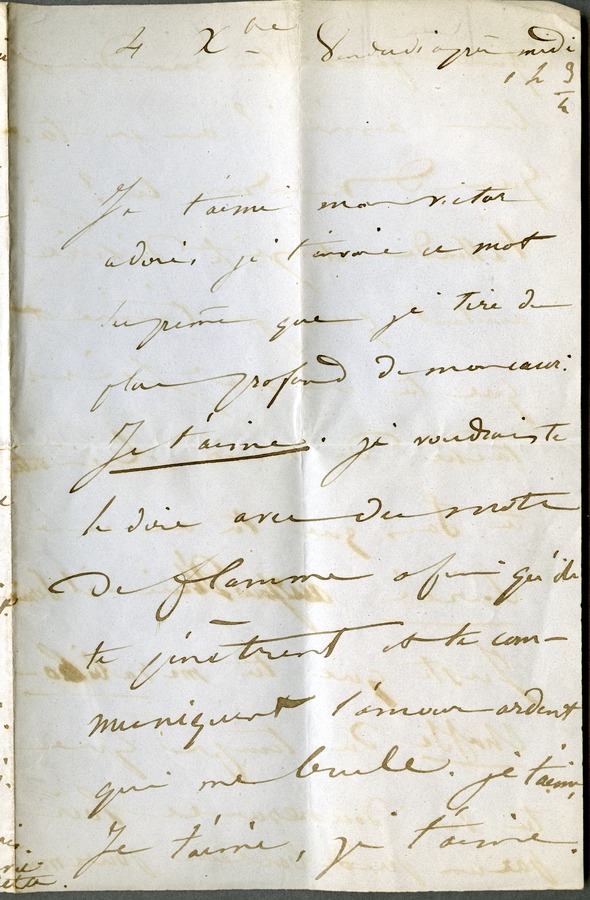 4 Xbre Vendredi après midi
1 h 3/4
Je t'aime mon victor
adoré, je t'envoie ce mot
suprême que je tire du
plus profond de mon cœur:
Je t'aime. je voudrais te
le dire avec des mots
de flamme afin qu'ils
te pénètrent et te com-
muniquent l'amour ardent
qui me brule. je t'aime,
Je t'aime, je t'aime.